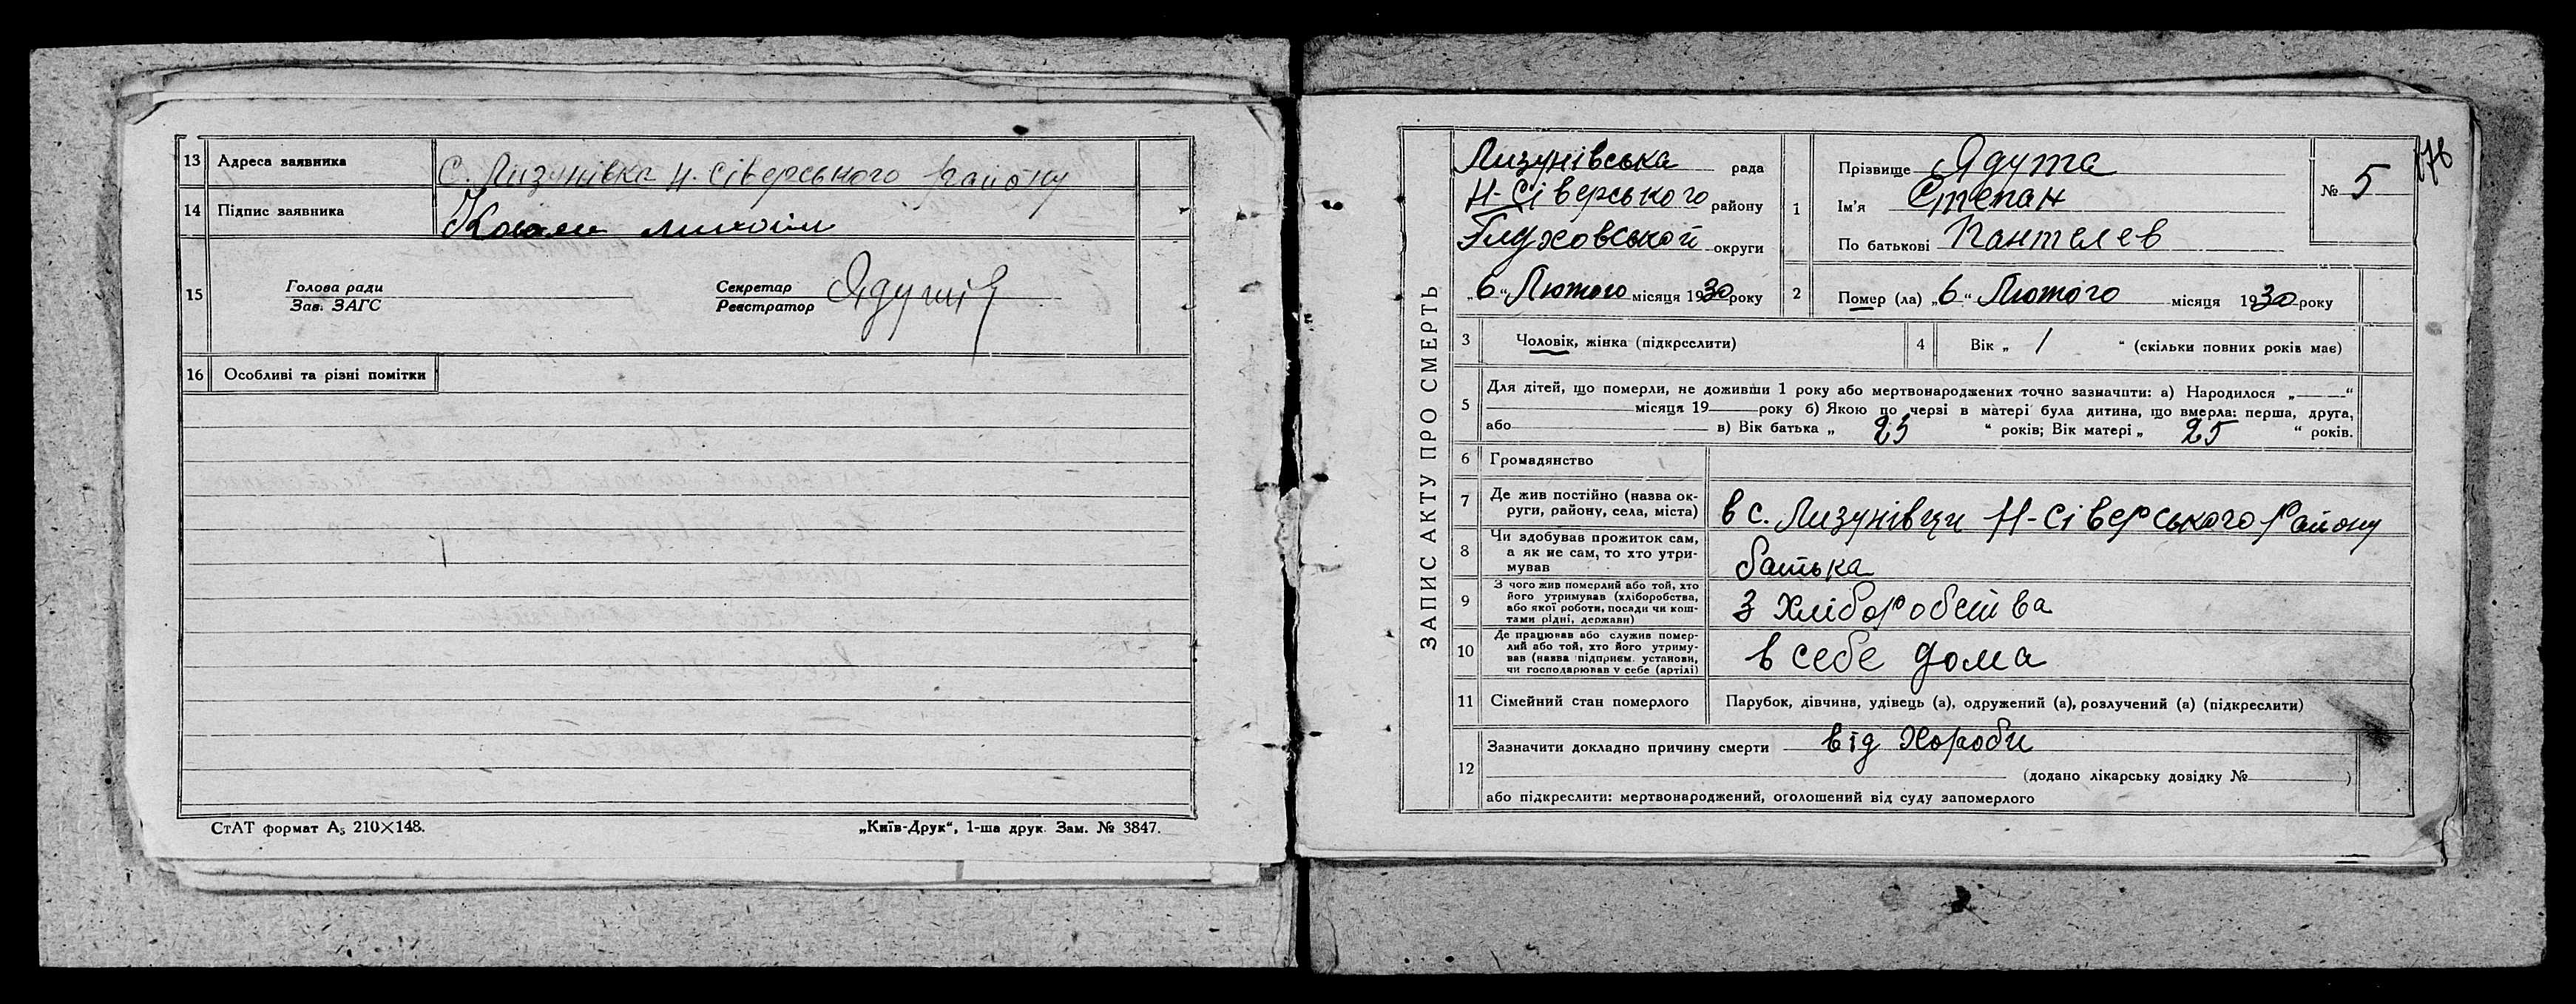 13 Адреса заявника С. Лизунівка Н. Сіверського району
14 Підпис заявника
15 Голова ради
Зав. ЗАГС
Секретар
Реєстратор
16 Особливі та різні помітки
СтАТ формат А₅ 210×148.
„Київ-Друк“, 1-ша друк. Зам. № 3847.
178
ЗАПИС АКТУ ПРО СМЕРТЬ
Лизунівська рада
Н-Сіверського району
Глуховської округи
„6“ Лютого місяця 1930 року
1 Прізвище Ядута
Ім’я Степан
По батькові Пантелев
№ 5
2 Помер (ла) „6“ Лютого місяця 1930 року
3 Чоловік, жінка (підкреслити)
4 Вік „ 1 “ (скільки повних років має)
5 Для дітей, що померли, не доживши 1 року або мертвонароджених точно зазначити: а) Народилося „ “
місяця 19 року б) Якою по черзі в матері була дитина, що вмерла: перша, друга,
або в) Вік батька „ 25 “ років; Вік матері „ 25 “ років.
6 Громадянство
7 Де жив постійно (назва ок-
руги, району, села, міста) в с. Лизунівци Н-Сіверського району
8 Чи здобував прожиток сам,
а як не сам, то хто утри-
мував батька
9 З чого жив померлий або той, хто
його утримував (хліборобства,
або якої роботи, посади чи кош-
тами рідні, держави) З Хліборобства
10 Де працював або служив помер-
лий або той, хто його утриму-
вав (назва підприєм. установи,
чи господарював у себе (артілі) в себе дома
11 Сімейний стан померлого Парубок, дівчина, удівець (а), одружений (а), розлучений (а) (підкреслити)
12 Зазначити докладно причину смерти від Хороби
(додано лікарську довідку № )
або підкреслити: мертвонароджений, оголошений від суду запомерлого